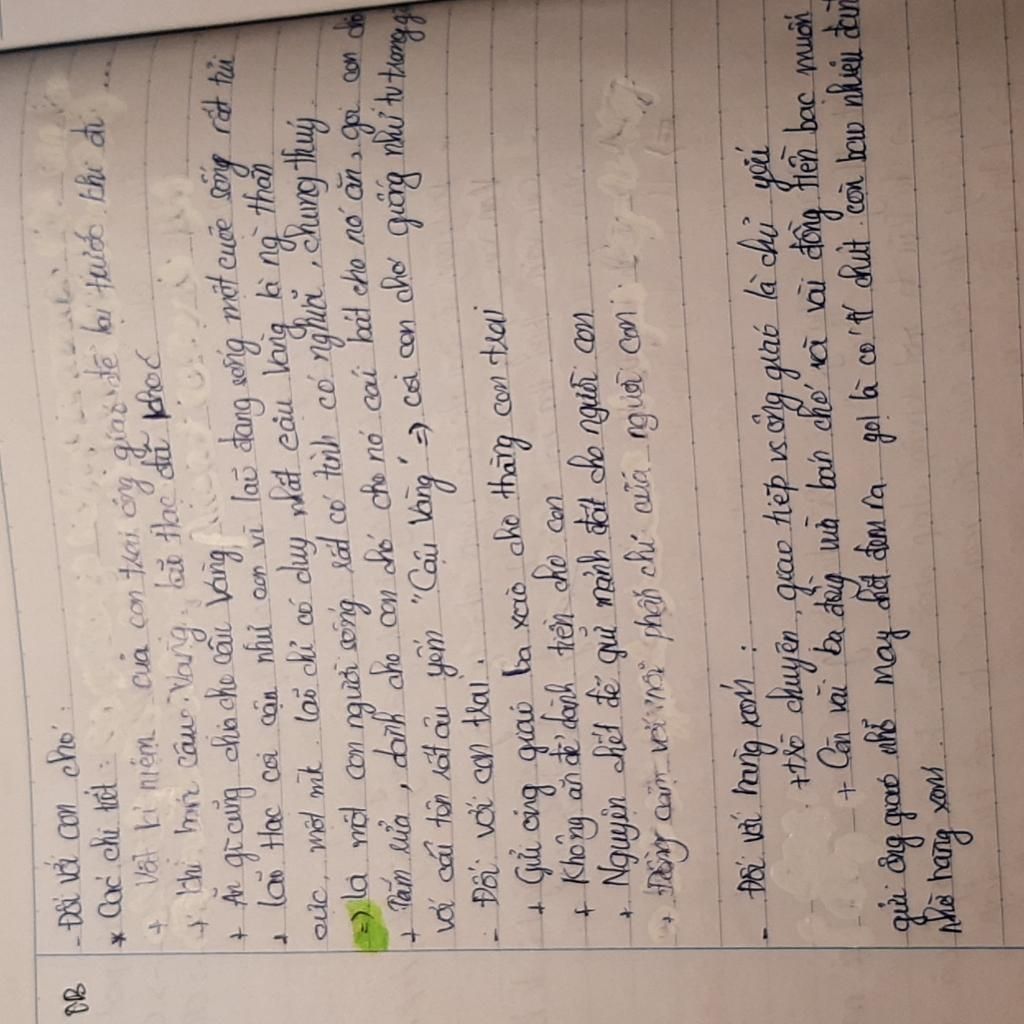 ĐB
- Đối với con chó :
* Các chi tiết :
+ Vật kỉ niệm của con trai ông giáo để lại trước khi đi ...
+ Khi bán cậu Vàng, lão Hạc đã khóc
+ Ăn gì cũng chia cho cậu Vàng
+ Lão Hạc coi cậu như con vì lão đang sống một cuộc sống rất tủi
cực, một mk. lão chỉ có duy nhất cậu Vàng là ng` thân
=> là một con người sống rất có tình có nghĩa, chung thuỷ
+ Tắm rửa, dành cho con chó cho nó cái bát cho nó ăn, gọi con chó
với cái tên rất âu yếm "Cậu Vàng" => coi con chó giống như tư tương
- Đối với con trai.
+ Gửi ông giáo ba xào cho thằng con trai
+ Không ăn để dành tiền cho con
+ Nguyện chết để gửi mảnh đất cho người con
+ Đồng cảm với mỗi phận chí của người con.
- Đối với hàng xóm :
+ trò chuyện, giao tiếp vs ông giáo là chủ yếu
+ Còn vài ba đồng mà bán chó và vài đồng tiền bạc muốn
gửi ông giáo nhỡ may chết đem ra gọi là có tí chút còn bao nhiêu đành
nhờ hàng xóm.